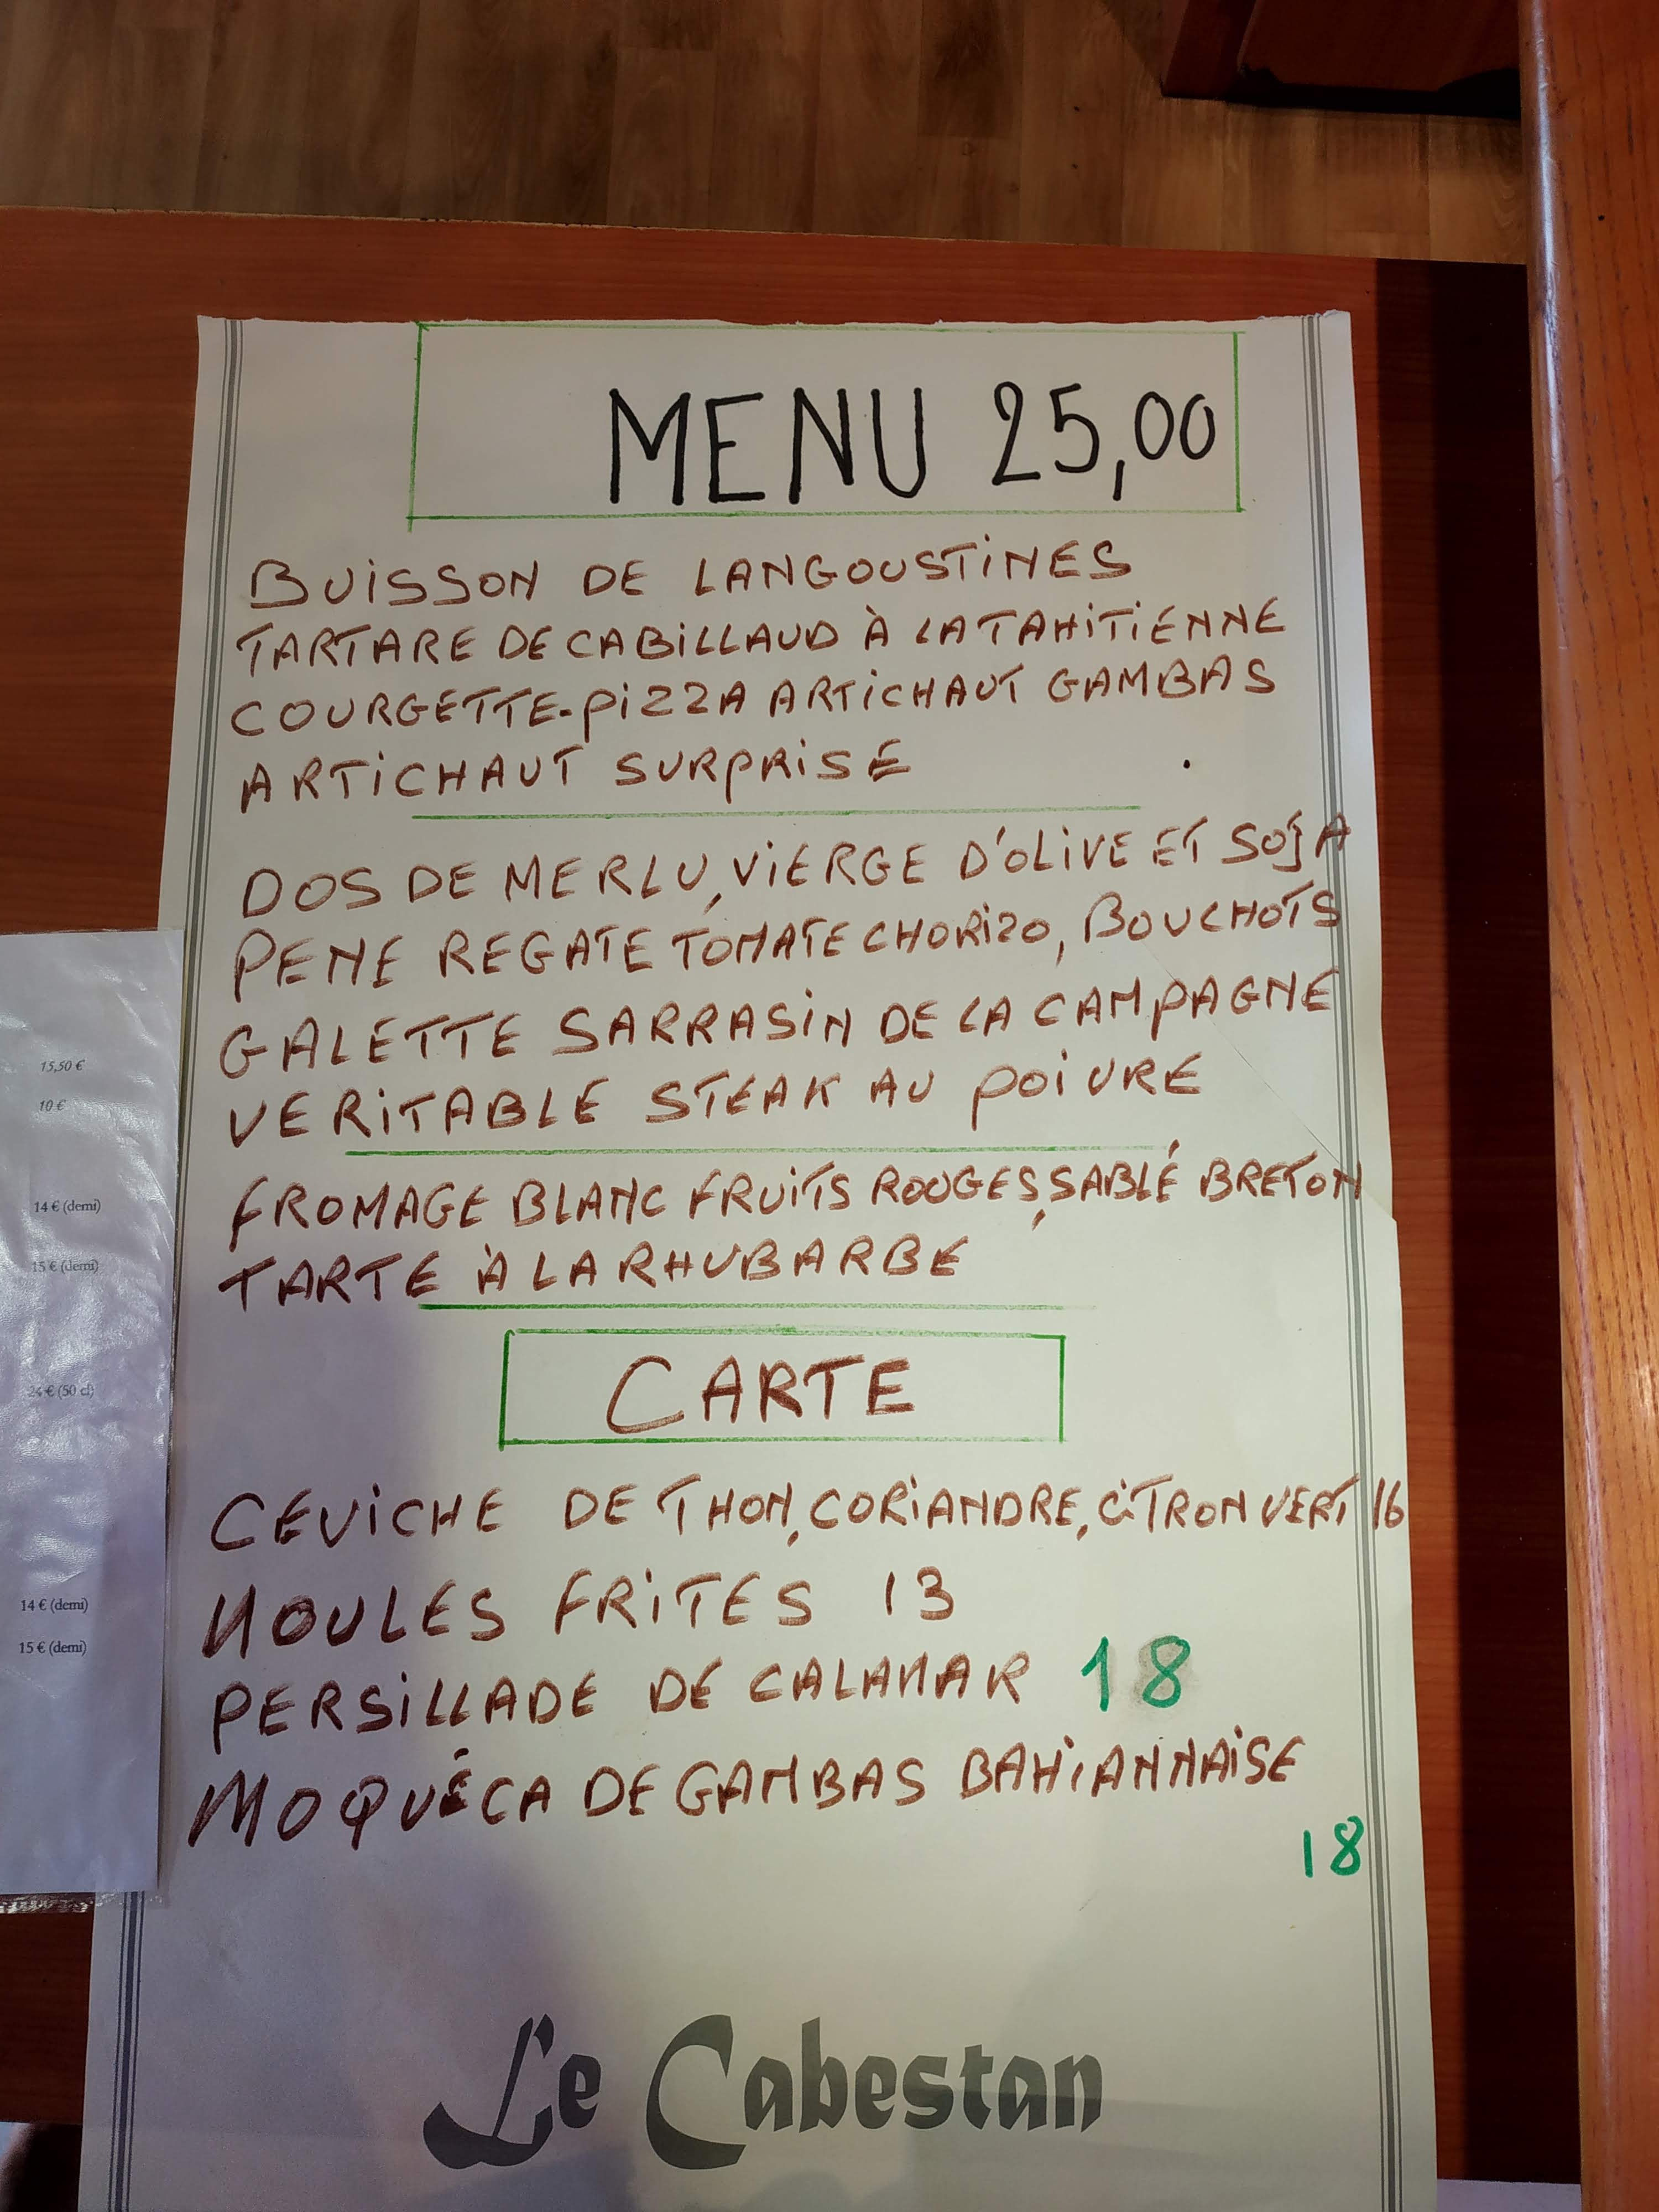 MENU 25,00
BUISSON DE LANGOUSTINES
TARTARE DE CABILLAUD À LA TAHITIENNE
COURGETTE-PIZZA ARTICHAUT GAMBAS
ARTICHAUT SURPRISE
DOS DE MERLU, VIERGE D'OLIVE ET SOJA
PENE REGATE TOMATE CHORIZO, BOUCHOTS
GALETTE SARRASIN DE LA CAMPAGNE
VERITABLE STEAK AU POIVRE
FROMAGE BLANC FRUITS ROUGES, SABLÉ BRETON
TARTE À LA RHUBARBE
CARTE
CEVICHE DE THON, CORIANDRE, CITRON VERT 16
MOULES FRITES 13
PERSILLADE DE CALAMAR 18
MOQUÉCA DE GAMBAS BAHIANNAISE
18
Le Cabestan
15,50 €
10 €
14 € (demi)
15 € (demi)
24 € (50 cl)
14 € (demi)
15 € (demi)